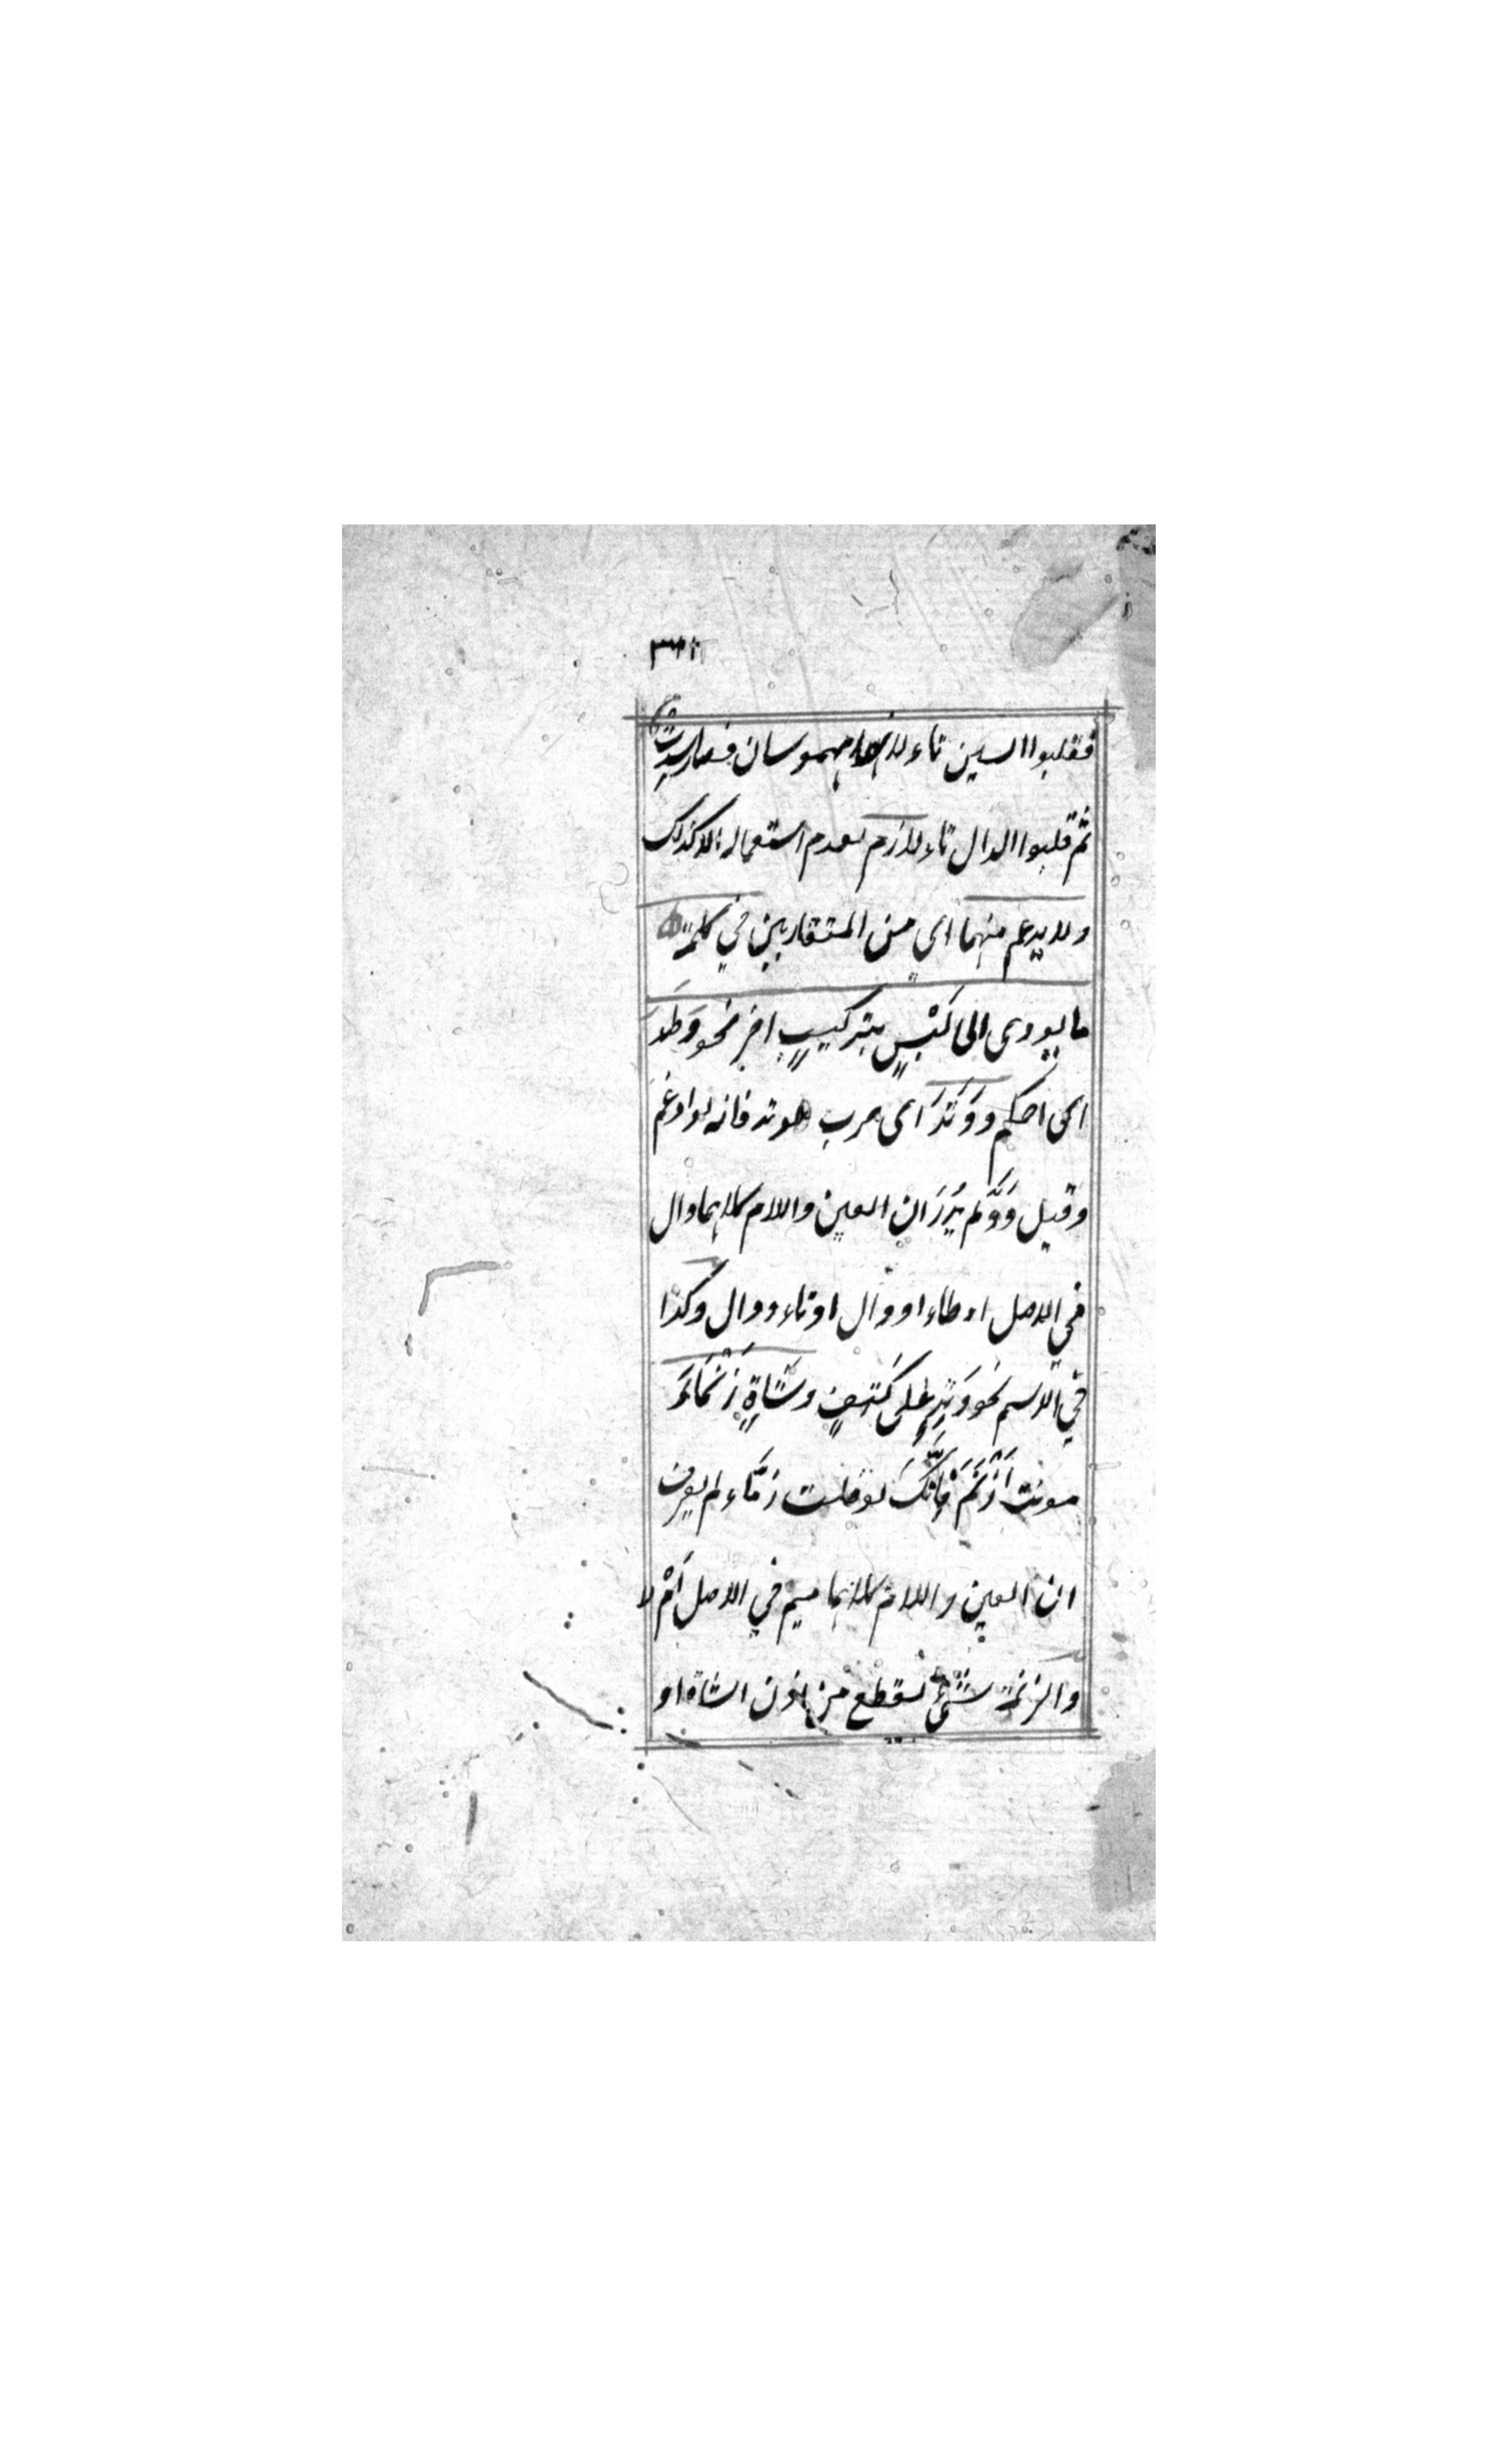 فقلبوا السين تاء لانهما مهموسان فصار سدت
ثم قلبوا الدال تاء لازم لعدم استعماله الا كذلك
ولا يدغم منهما اى من المتقاربين في كلمة
ما يودى الى لَبْسٍ بتركيبٍ اخر نحو وَطَدَ
اى احكم ووَتَدَ اى ضرب هوتد فانه لو ادغم
وقيل وَدَّ لم يُدْرَ ان العين واللام كلاهما دال
في الاصل او طاء او دال او تاء ودال وكذا
في الاسم نحو وَتِدٍ على كَتِفٍ وشَاةٍ زَنْمَاءَ
مونث اَزْنَمَ فَاِنَّكَ لو قلت زمَّاء لم يعرف
ان العين واللام كلاهما ميم في الاصل اَمْ لا
والزنمة شئ يقطع من اذن الشاة او